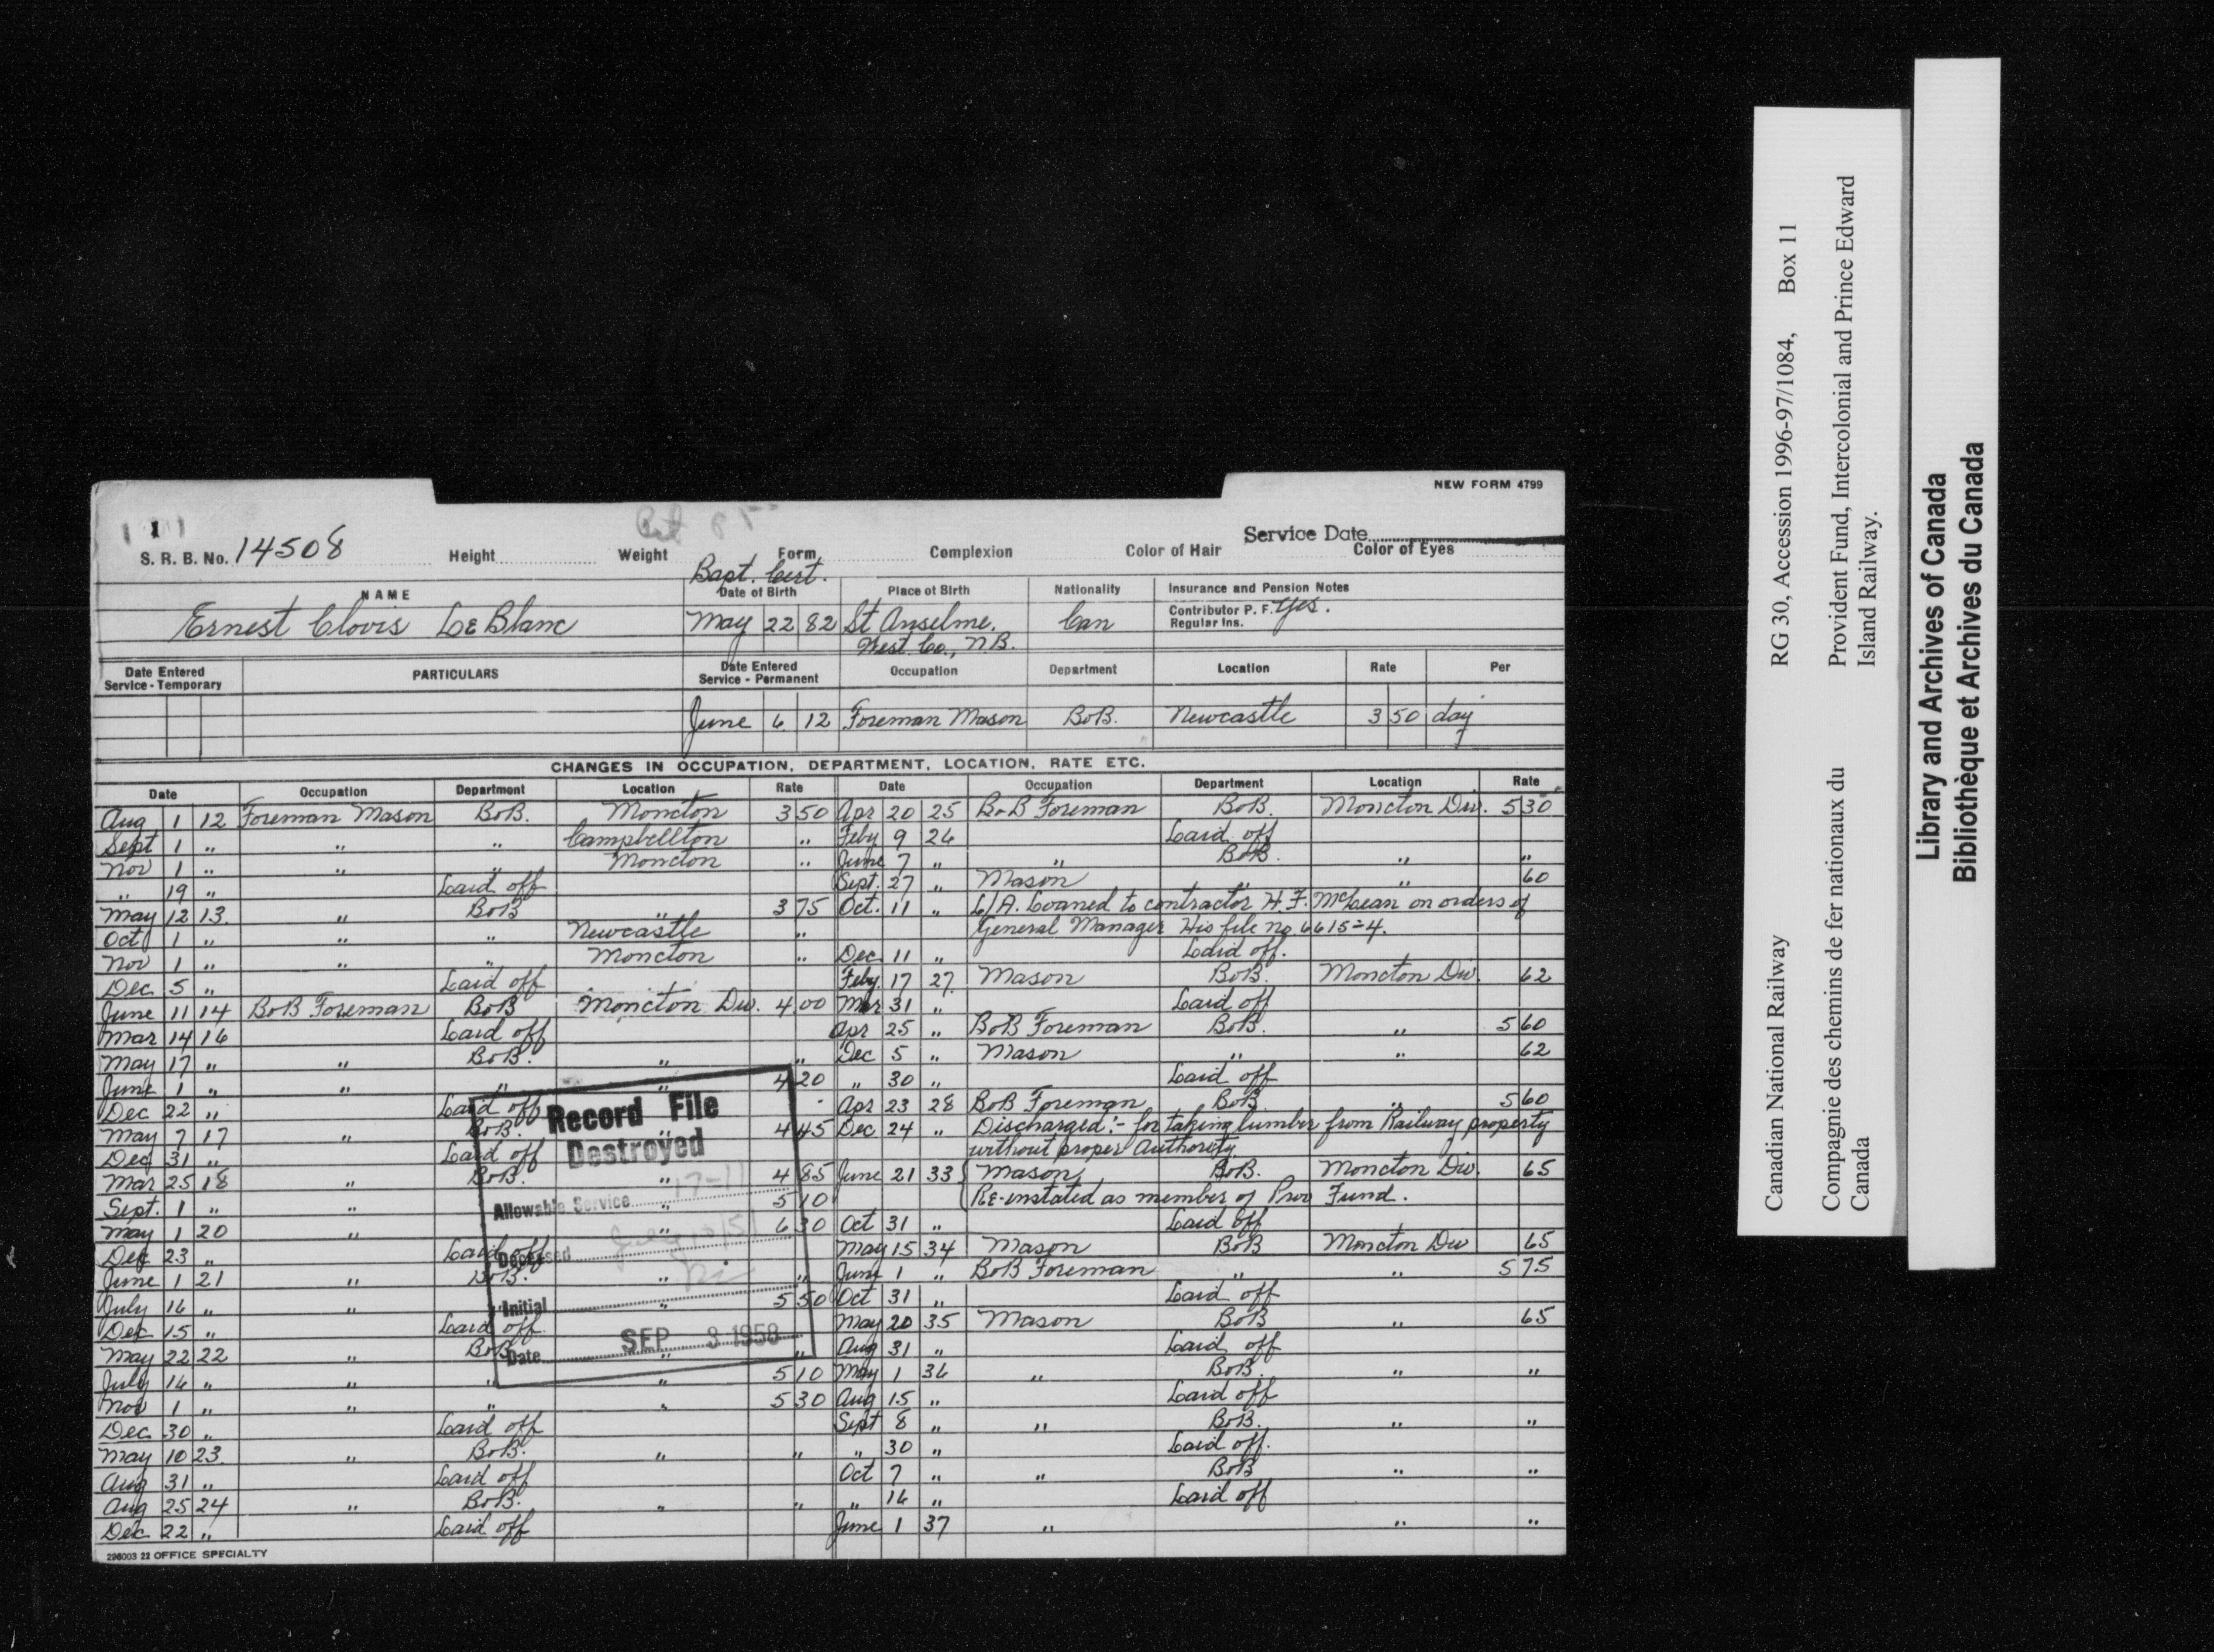 NEW FORM 4799
Service Date
S. R. B. No. 14508 Height Weight Form Complexion Color of Hair Color of Eyes
Bapt. Cert.
NAME Date of Birth Place of Birth Nationality Insurance and Pension Notes
Ernest Clovis LeBlanc May 22 82 St Anselme, Can Contributor P. F. Yes.
West. Co., N.B. Regular Ins.
Date Entered Service - Temporary PARTICULARS Date Entered Service - Permanent Occupation Department Location Rate Per
June 6 12 Foreman Mason B&B. Newcastle 3 50 day
CHANGES IN OCCUPATION, DEPARTMENT, LOCATION, RATE ETC.
Date Occupation Department Location Rate
Aug 1 12 Foreman Mason B&B. Moncton 3 50
Sept 1 " " " Campbellton "
Nov 1 " " " Moncton "
" 19 " Laid off
May 12 13. " B&B " 3 75
Oct 1 " " " Newcastle "
Nov 1 " " " Moncton "
Dec 5 " Laid off
June 11 14 B&B Foreman B&B Moncton Div. 4 00
Mar 14 16 Laid off
May 17 " " B&B. " "
June 1 " " " " 4 20
Dec 22 " Laid off
May 7 17 " B&B. " 4 45
Dec 31 " Laid off
Mar 25 18 " B&B. " 4 85
Sept. 1 " " " 5 10
May 1 20 " " 6 30
Dec 23 " Laid off
June 1 21 " B&B. " "
July 16 " " " 5 50
Dec 15 " Laid off
May 22 22 " B&B " "
July 16 " " " " 5 10
Nov 1 " " " " 5 30
Dec 30 " Laid off
May 10 23. " B&B. " "
Aug 31 " Laid off
Aug 25 24 " B&B. " "
Dec 22 " Laid off
Date Occupation Department Location Rate
Apr 20 25 B&B Foreman B&B. Moncton Div. 5 30
Feby 9 26 Laid off
June 7 " " B&B. " "
Sept. 27 " Mason " " 60
Oct. 11 " L/A. Loaned to contractor H. F. McLean on orders of
General Manager His file no 6615-4.
Dec 11 " Laid off.
Feby 17 27 Mason B&B. Moncton Div. 62
Mar 31 " Laid off
Apr 25 " B&B Foreman B&B. " 5 60
Dec 5 " Mason " " 62
" 30 " Laid off
Apr 23 28 B&B Foreman B&B. " 5 60
Dec 24 " Discharged:- for taking lumber from Railway property
without proper Authority.
June 21 33 Mason B&B. Moncton Div. 65
Re-instated as member of Prov Fund.
Oct 31 " Laid off
May 15 34 Mason B&B Moncton Div 65
June 1 " B&B Foreman " " 5 75
Oct 31 " Laid off
May 20 35 Mason B&B " 65
Aug 31 " Laid off
May 1 36 " B&B. " "
Aug 15 " Laid off
Sept 8 " " B&B. " "
" 30 " Laid off.
Oct 7 " " B&B " "
" 16 " Laid off
June 1 37 " " "
Record File
Destroyed
Allowable Service 17-11
Deceased July 10/51
Initial
Date SEP 3 1958
298003 22 OFFICE SPECIALTY
Canadian National Railway RG 30, Accession 1996-97/1084, Box 11
Compagnie des chemins de fer nationaux du Provident Fund, Intercolonial and Prince Edward
Canada Island Railway.
Library and Archives of Canada
Bibliothèque et Archives du Canada